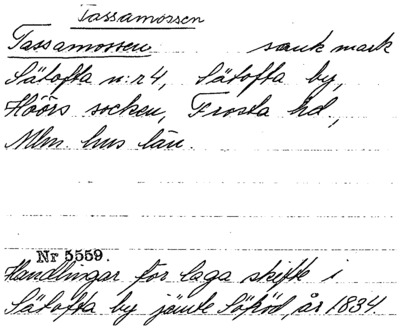 Tassamossen
Tassamossen sank mark
Sätofta n:r 4, Sätofta by,
Höörs socken, Frosta hd,
Mlm. hus län.
Nr 5559.
Handlingar för laga skifte i
Sätofta by jämte Sjöröd, år 1834.